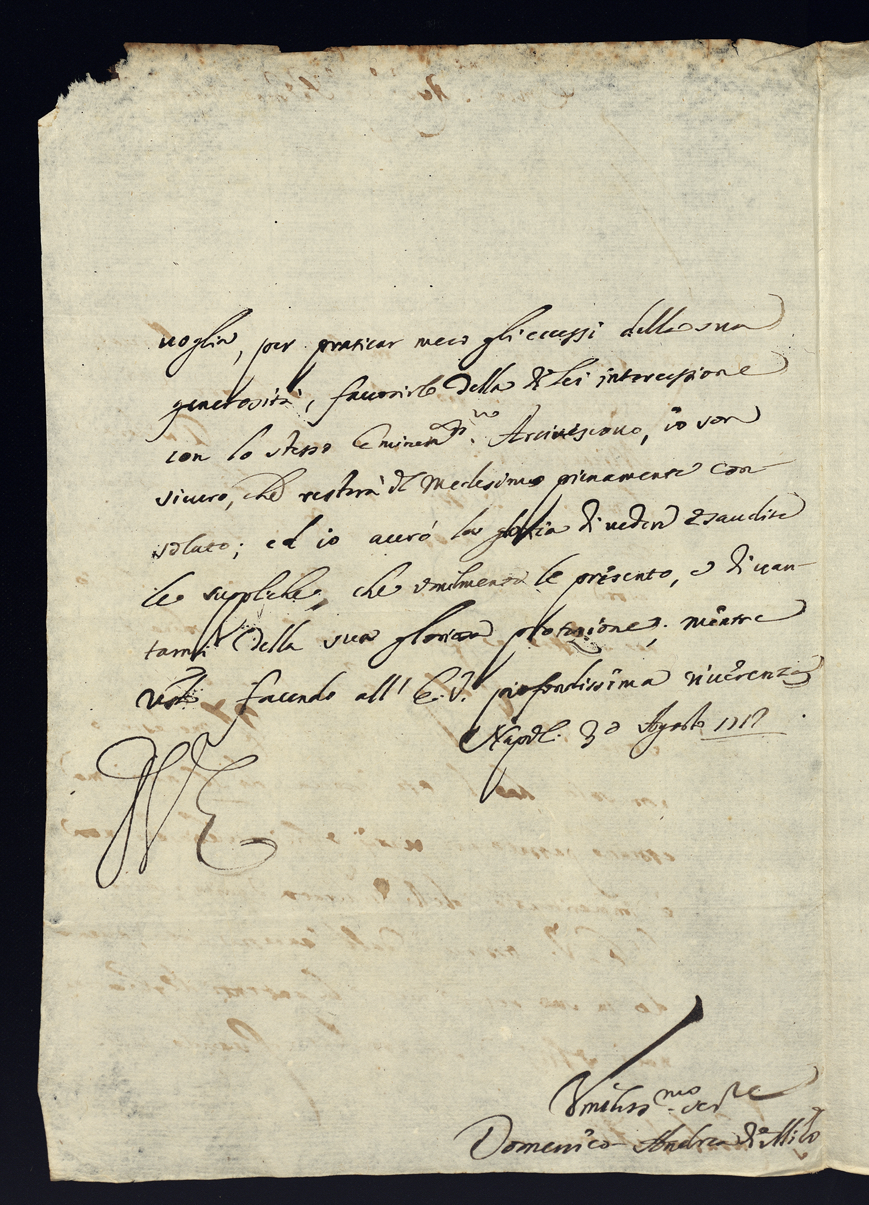 voglia, per praticar meco gli eccessi della sua
generosità, favorirlo della di lei intercessione
con lo stesso Eminentmo. Arcivescovo, io son
sicuro, che resterà il Medesimo pienamente con-
solato; ed io averò la gloria di veder esaudite
le suppliche, che umilmente le presento, e di van-
tarmi della sua gloriosa protezione; mentre
facendo all' E.V. profondissima riverenza
Napoli 30 Agosto 1717
VE
Umiliss.mo ser.re
Domenico Andrea di Milo